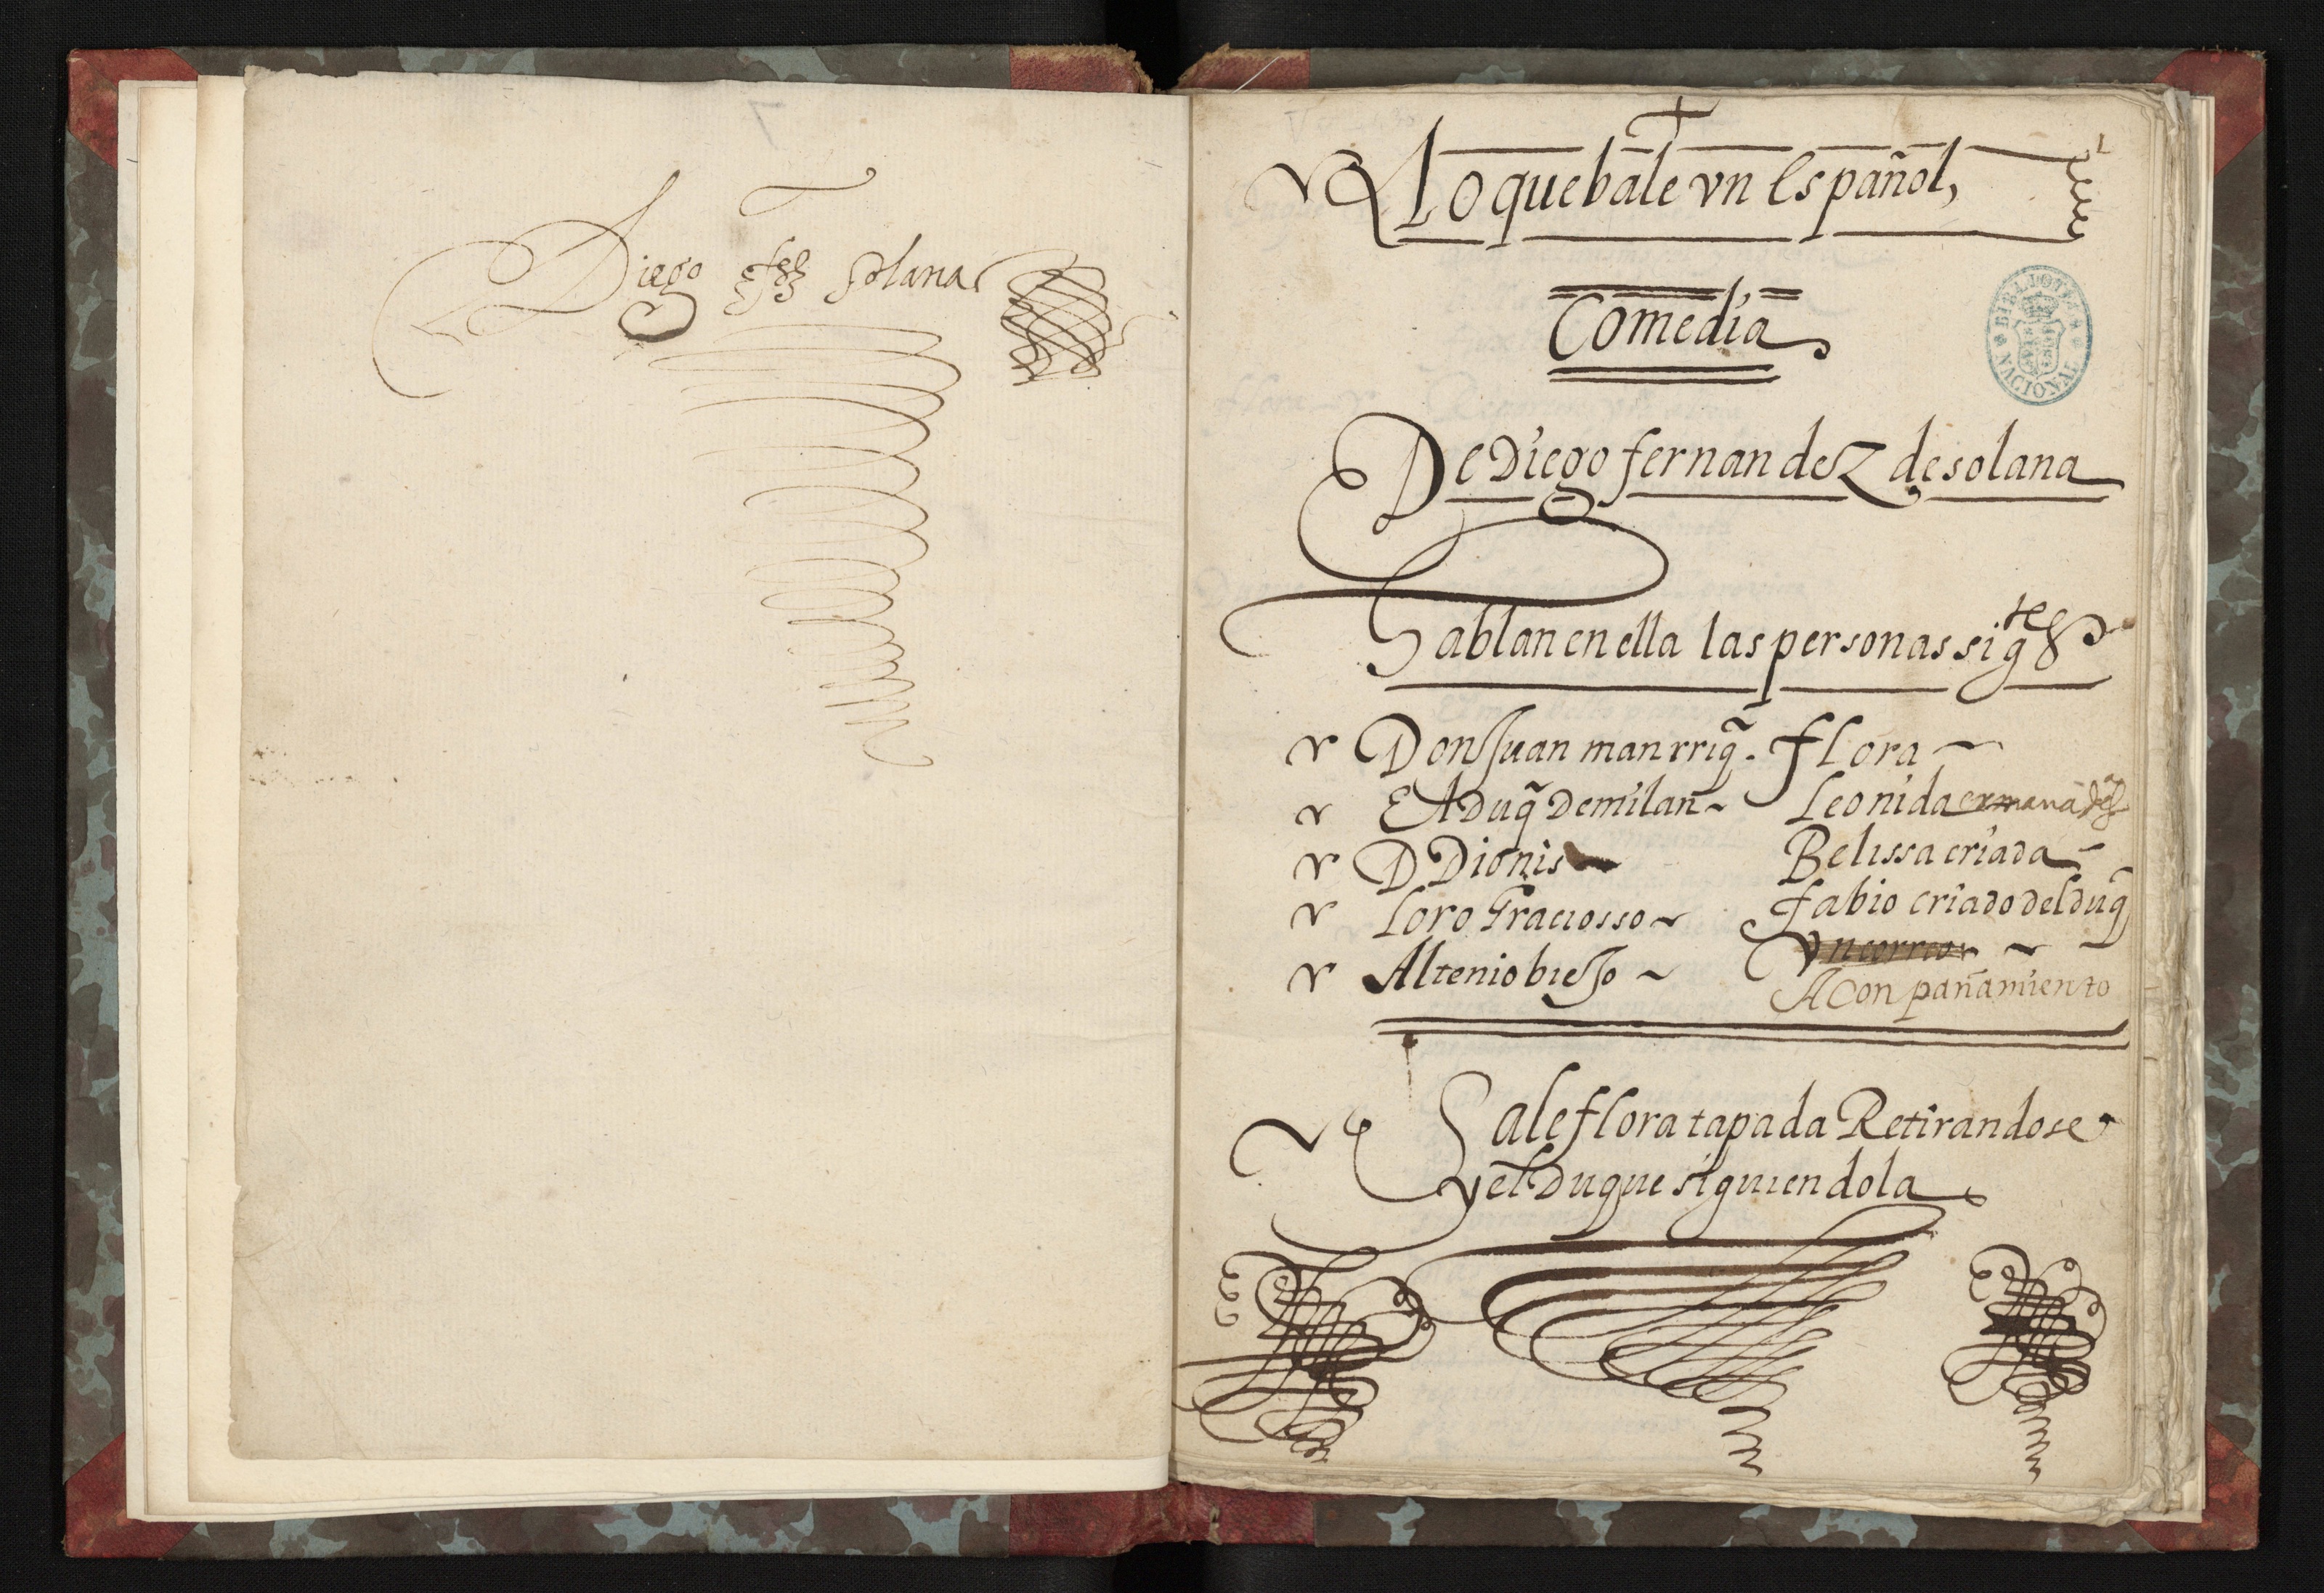 Diego frz solana
Lo que bale vn español,
Comedia
De Diego fernandez de solana
Hablan en ella las personas sigtes
Don Juan manrriq̃. flora
El Duq̃ de milan
Leonida ermana del
D Dionis
Belissa criada
Loro Graciosso
fabio criado del duq̃
Altenio biejo
Vn correo
Aconpañamiento
Sale flora tapada Retirandose
y el Duque siguiendola
BIBLIOTECA NACIONAL